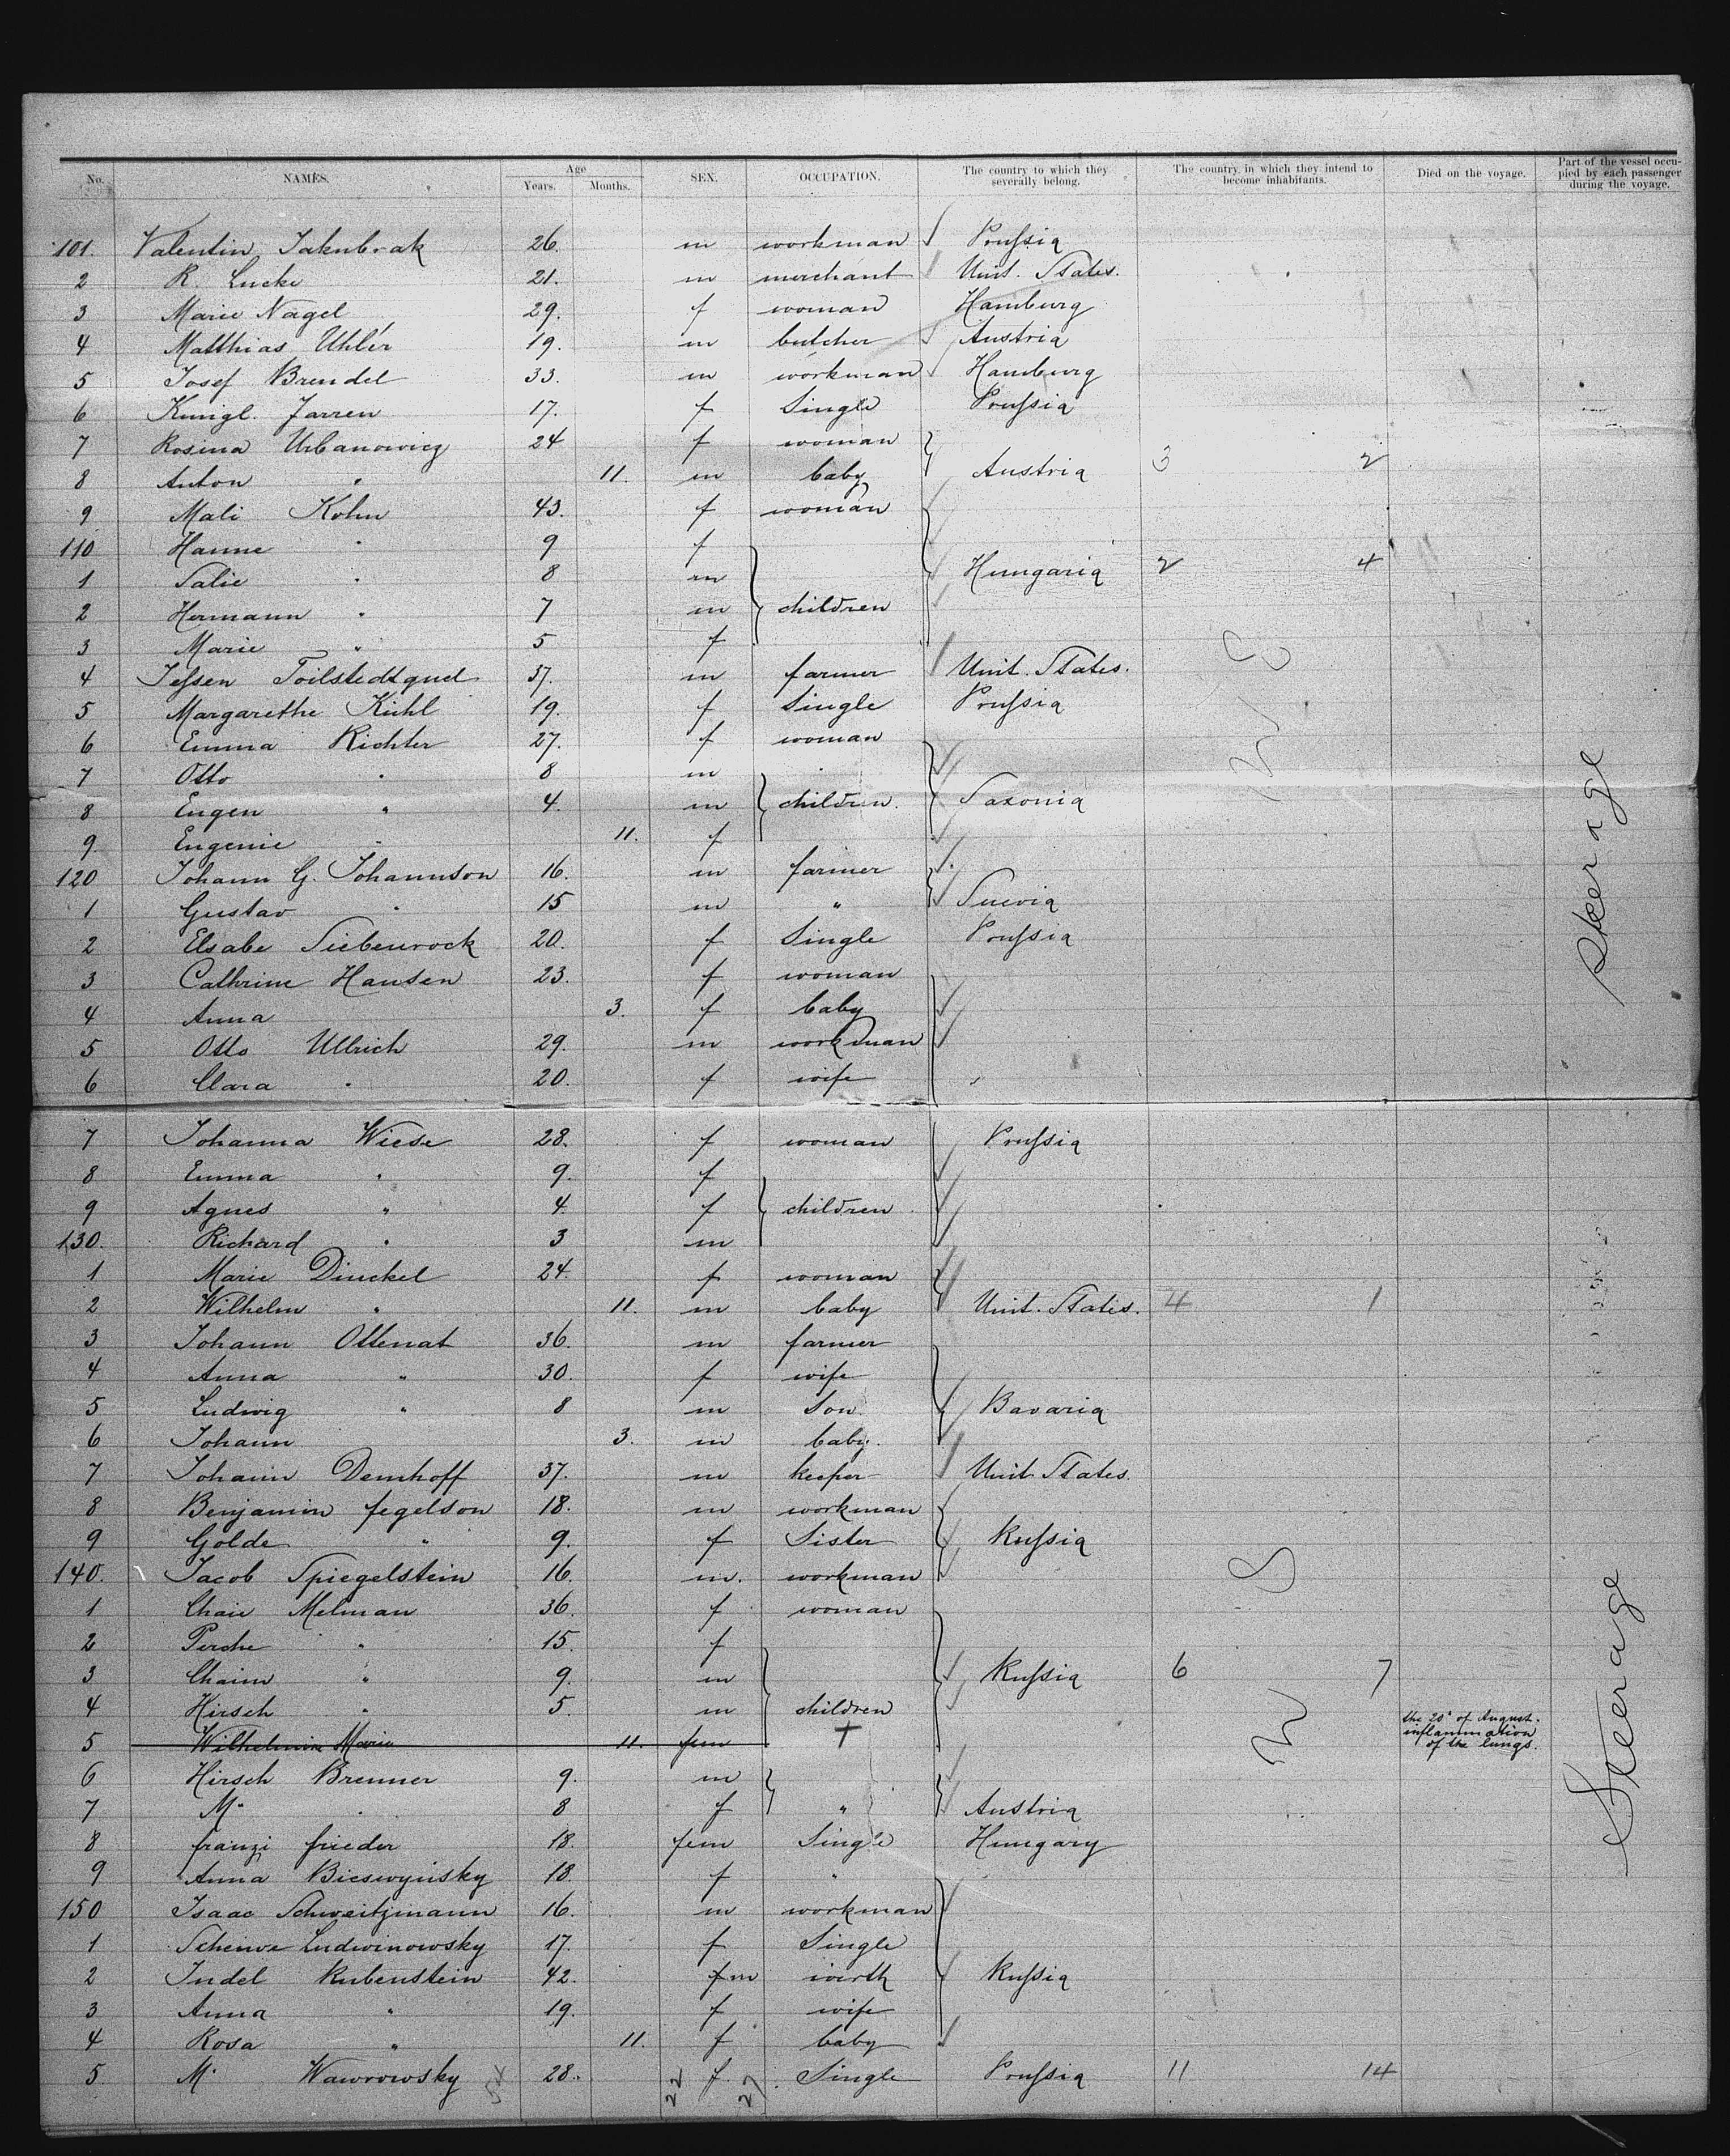 No. NAMES. Age Years. Months. SEX. OCCUPATION. The country to which they severally belong. The country in which they intend to become inhabitants. Died on the voyage. Part of the vessel occupied by each passenger during the voyage.
101. Valentin Jakubrak 26. m workman Prussia
2 R. Lucke 21. m merchant Unit. States.
3 Marie Nagel 29. f woman Hamburg
4 Matthias Uhler 19. m butcher Austria
5 Josef Brendel 33. m workman Hamburg
6 Kunigl. Jarren 17. f Single Prussia
7 Rosina Urbanowicz 24 f woman
8 Anton " 11. m baby Austria 3 2
9 Mali Kohn 43. f woman
110 Hanne " 9 f
1 Salie " 8 m Hungaria 2 4
2 Hermann " 7 m children
3 Marie " 5 f
4 Jessen Toilstedtgued 37. m farmer Unit. States.
5 Margarethe Kühl 19. f Single Prussia
6 Emma Richter 27. f woman
7 Otto " 8 m
8 Eugen " 4. m children. Saxonia
9. Eugenie " 11. f
120 Johann G. Johannson 16. m farmer
1 Gustav " 15 m " Suevia
2 Elsabe Siebenrock 20. f Single Prussia
3 Cathrine Hansen 23. f woman
4 Anna 3. f baby
5 Otto Ullrich 29. m workman
6 Clara " 20. f wife
7 Johanna Wiese 28. f woman Prussia
8 Emma " 9. f
9 Agnes " 4. f children
130. Richard " 3 m
1 Marie Dinckel 24. f woman
2 Wilhelm " 11. m baby Unit. States. 4 1
3 Johann Ottenat 36. m farmer
4 Anna " 30. f wife
5 Ludwig " 8 m Son Bavaria
6 Johann 3. m baby.
7 Johann Demhoff 37. m keeper Unit States.
8 Benjamin fegelson 18. m workman
9 Golde " 9. f Sister Russia
140. Jacob Spiegelstein 16. m. workman
1 Chaie Melman 36. f woman
2 Perche " 15. f
3 Chaim " 9. m Russia 6 7
4 Hirsch " 5. m children
5 Wilhelmine Marie 11. fem + the 20' of August. inflammation of the lungs.
6 Hirsch Brenner 9. m
7 M. " 8 f " Austria
8 franzi frieder 18. fem Single Hungary
9 Anna Bieswyinsky 18. f "
150 Isaac Schweitzmann 16. m workman
1 Scheiwe Ludwinowsky 17. f Single
2 Judel Rubenstein 42. m wirth Russia
3 Anna " 19. f wife
4 Rosa " 11. f baby
5 M. Wawrowsky 28. f. Single Prussia 11 14
54 22 27
U S
U S
Steerage
Steerage